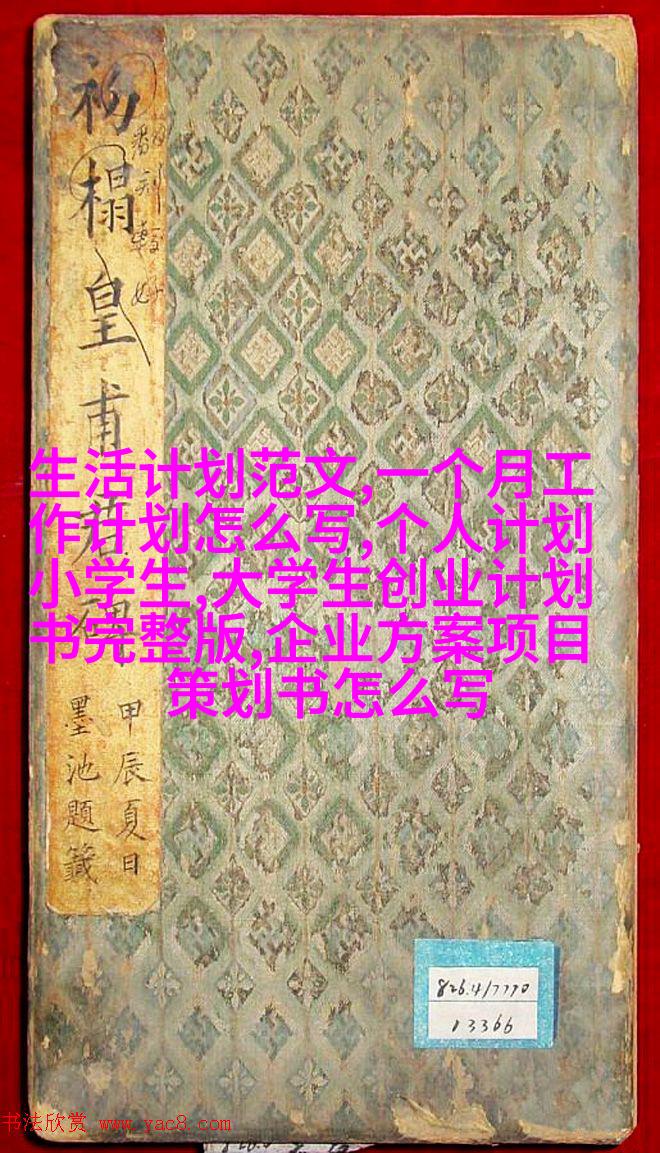 初榻皇甫君碑
翻刻較好
甲辰夏日
墨池題籤
生活计划范文,一个月工
作计划怎么写,个人计划
小学生,大学生创业计划
书完整版,企业方案项目
策划书怎么写
826.4/7770
13366
书法欣赏 www.yac8.com